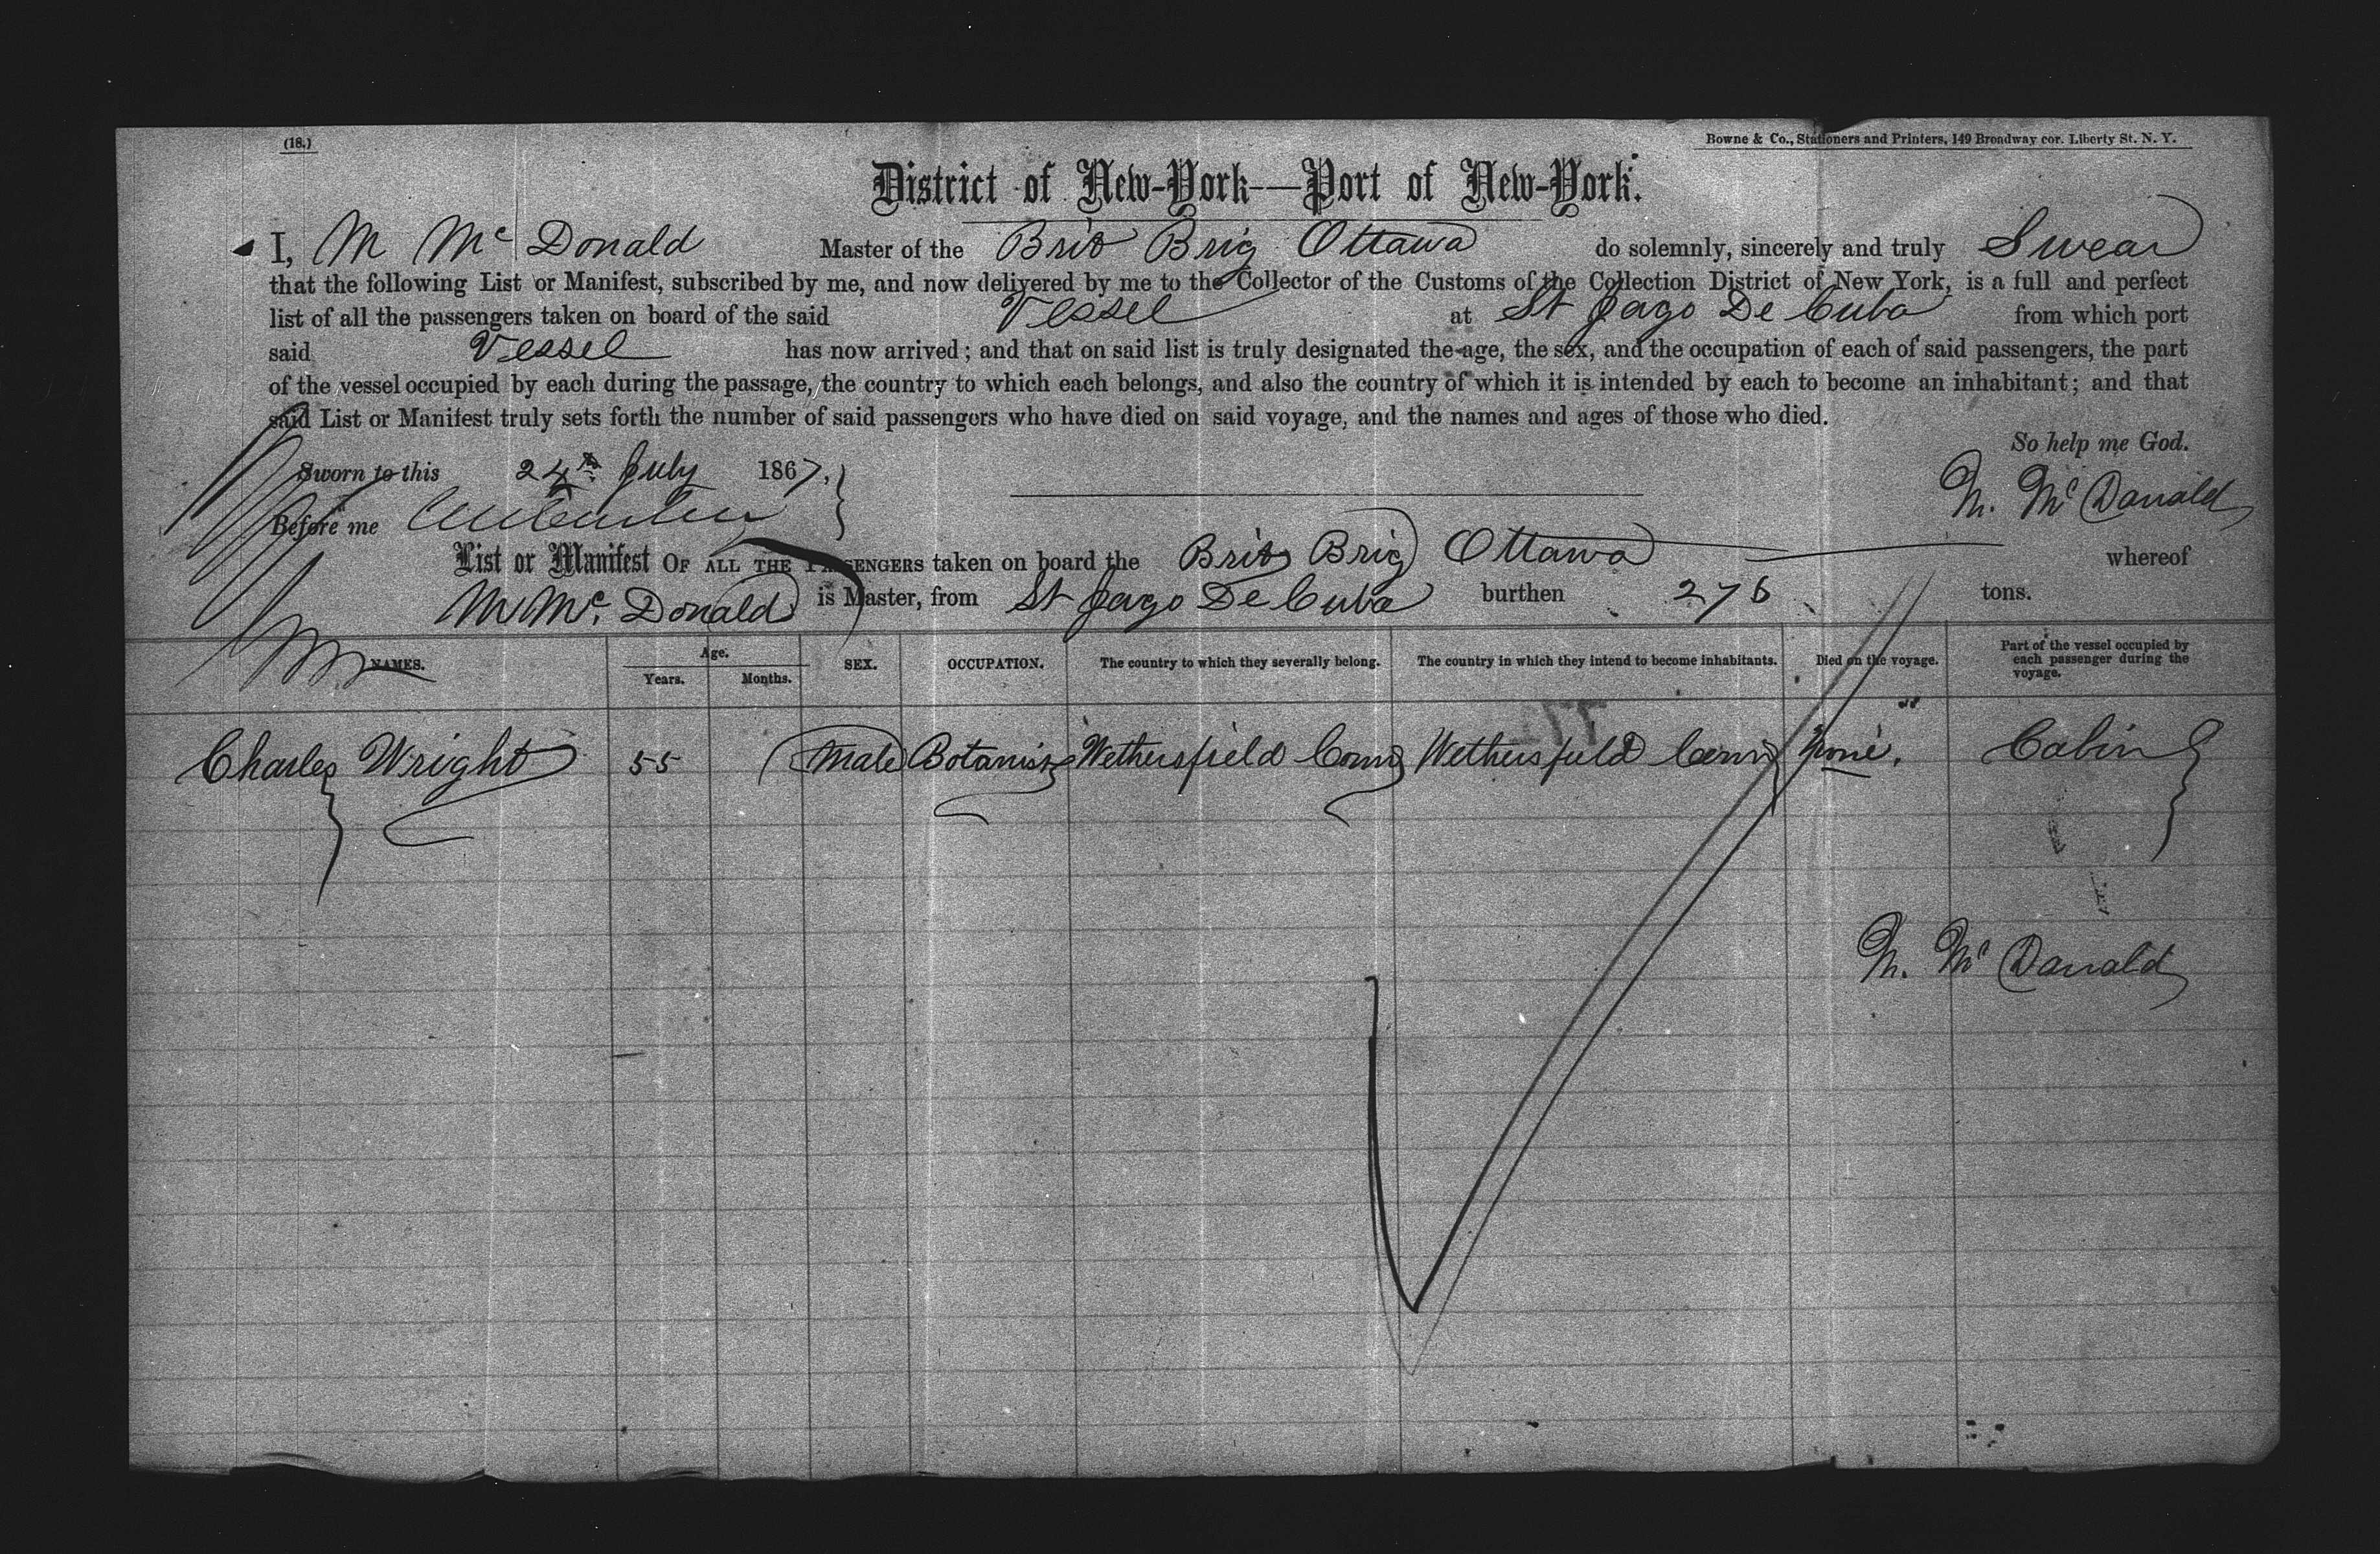 (18.)
Bowne & Co., Stationers and Printers, 149 Broadway cor. Liberty St. N. Y.
District of New-York—Port of New-York.
I, M Mc Donald Master of the Brit Brig Ottawa do solemnly, sincerely and truly Swear
that the following List or Manifest, subscribed by me, and now delivered by me to the Collector of the Customs of the Collection District of New York, is a full and perfect
list of all the passengers taken on board of the said Vessel at St Jago De Cuba from which port
said Vessel has now arrived; and that on said list is truly designated the age, the sex, and the occupation of each of said passengers, the part
of the vessel occupied by each during the passage, the country to which each belongs, and also the country of which it is intended by each to become an inhabitant; and that
said List or Manifest truly sets forth the number of said passengers who have died on said voyage, and the names and ages of those who died.
So help me God.
Sworn to this 24th July 1867,
M. Mc Donald
Before me
List or Manifest OF ALL THE PASSENGERS taken on board the Brit Brig Ottawa whereof
M Mc. Donald is Master, from St Jago De Cuba burthen 276 tons.
NAMES. Age. Years. Months. SEX. OCCUPATION. The country to which they severally belong. The country in which they intend to become inhabitants. Died on the voyage. Part of the vessel occupied by each passenger during the voyage.
Charles Wright 55 Male Botanist Wethersfield Conn Wethersfield Conn None. Cabin
M. Mc Donald